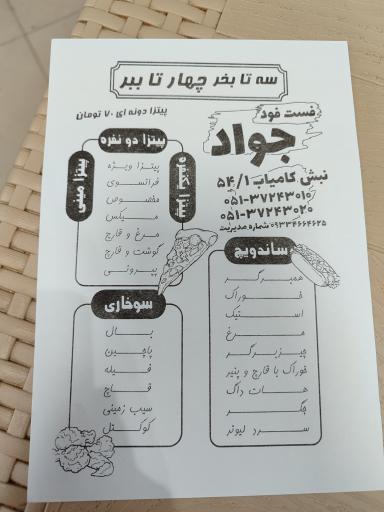 سه تا بخر چهار تا ببر
پیتزا دونه ای ۷۰ تومان
فست فود
جواد
نبش کامیاب ۵۴/۱
۰۵۱-۳۷۲۴۳۰۱۰
۰۵۱-۳۷۲۴۳۰۲۰
۰۹۳۳۴۶۶۴۶۲۵ شماره مدیریت
پیتزا دو نفره
پیتزا یکنفره
پیتزا مینی
پیتزا ویژه
فرانسوی
مخصوص
میکس
مرغ و قارچ
گوشت و قارچ
پپرونی
ساندویچ
همبرگر
خوراک
استیک
مرغ
چیزبرگر
خوراک با قارچ و پنیر
هات داگ
جگر
سرد لیونر
سوخاری
بال
پاچین
فیله
قارچ
سیب زمینی
کوکتل